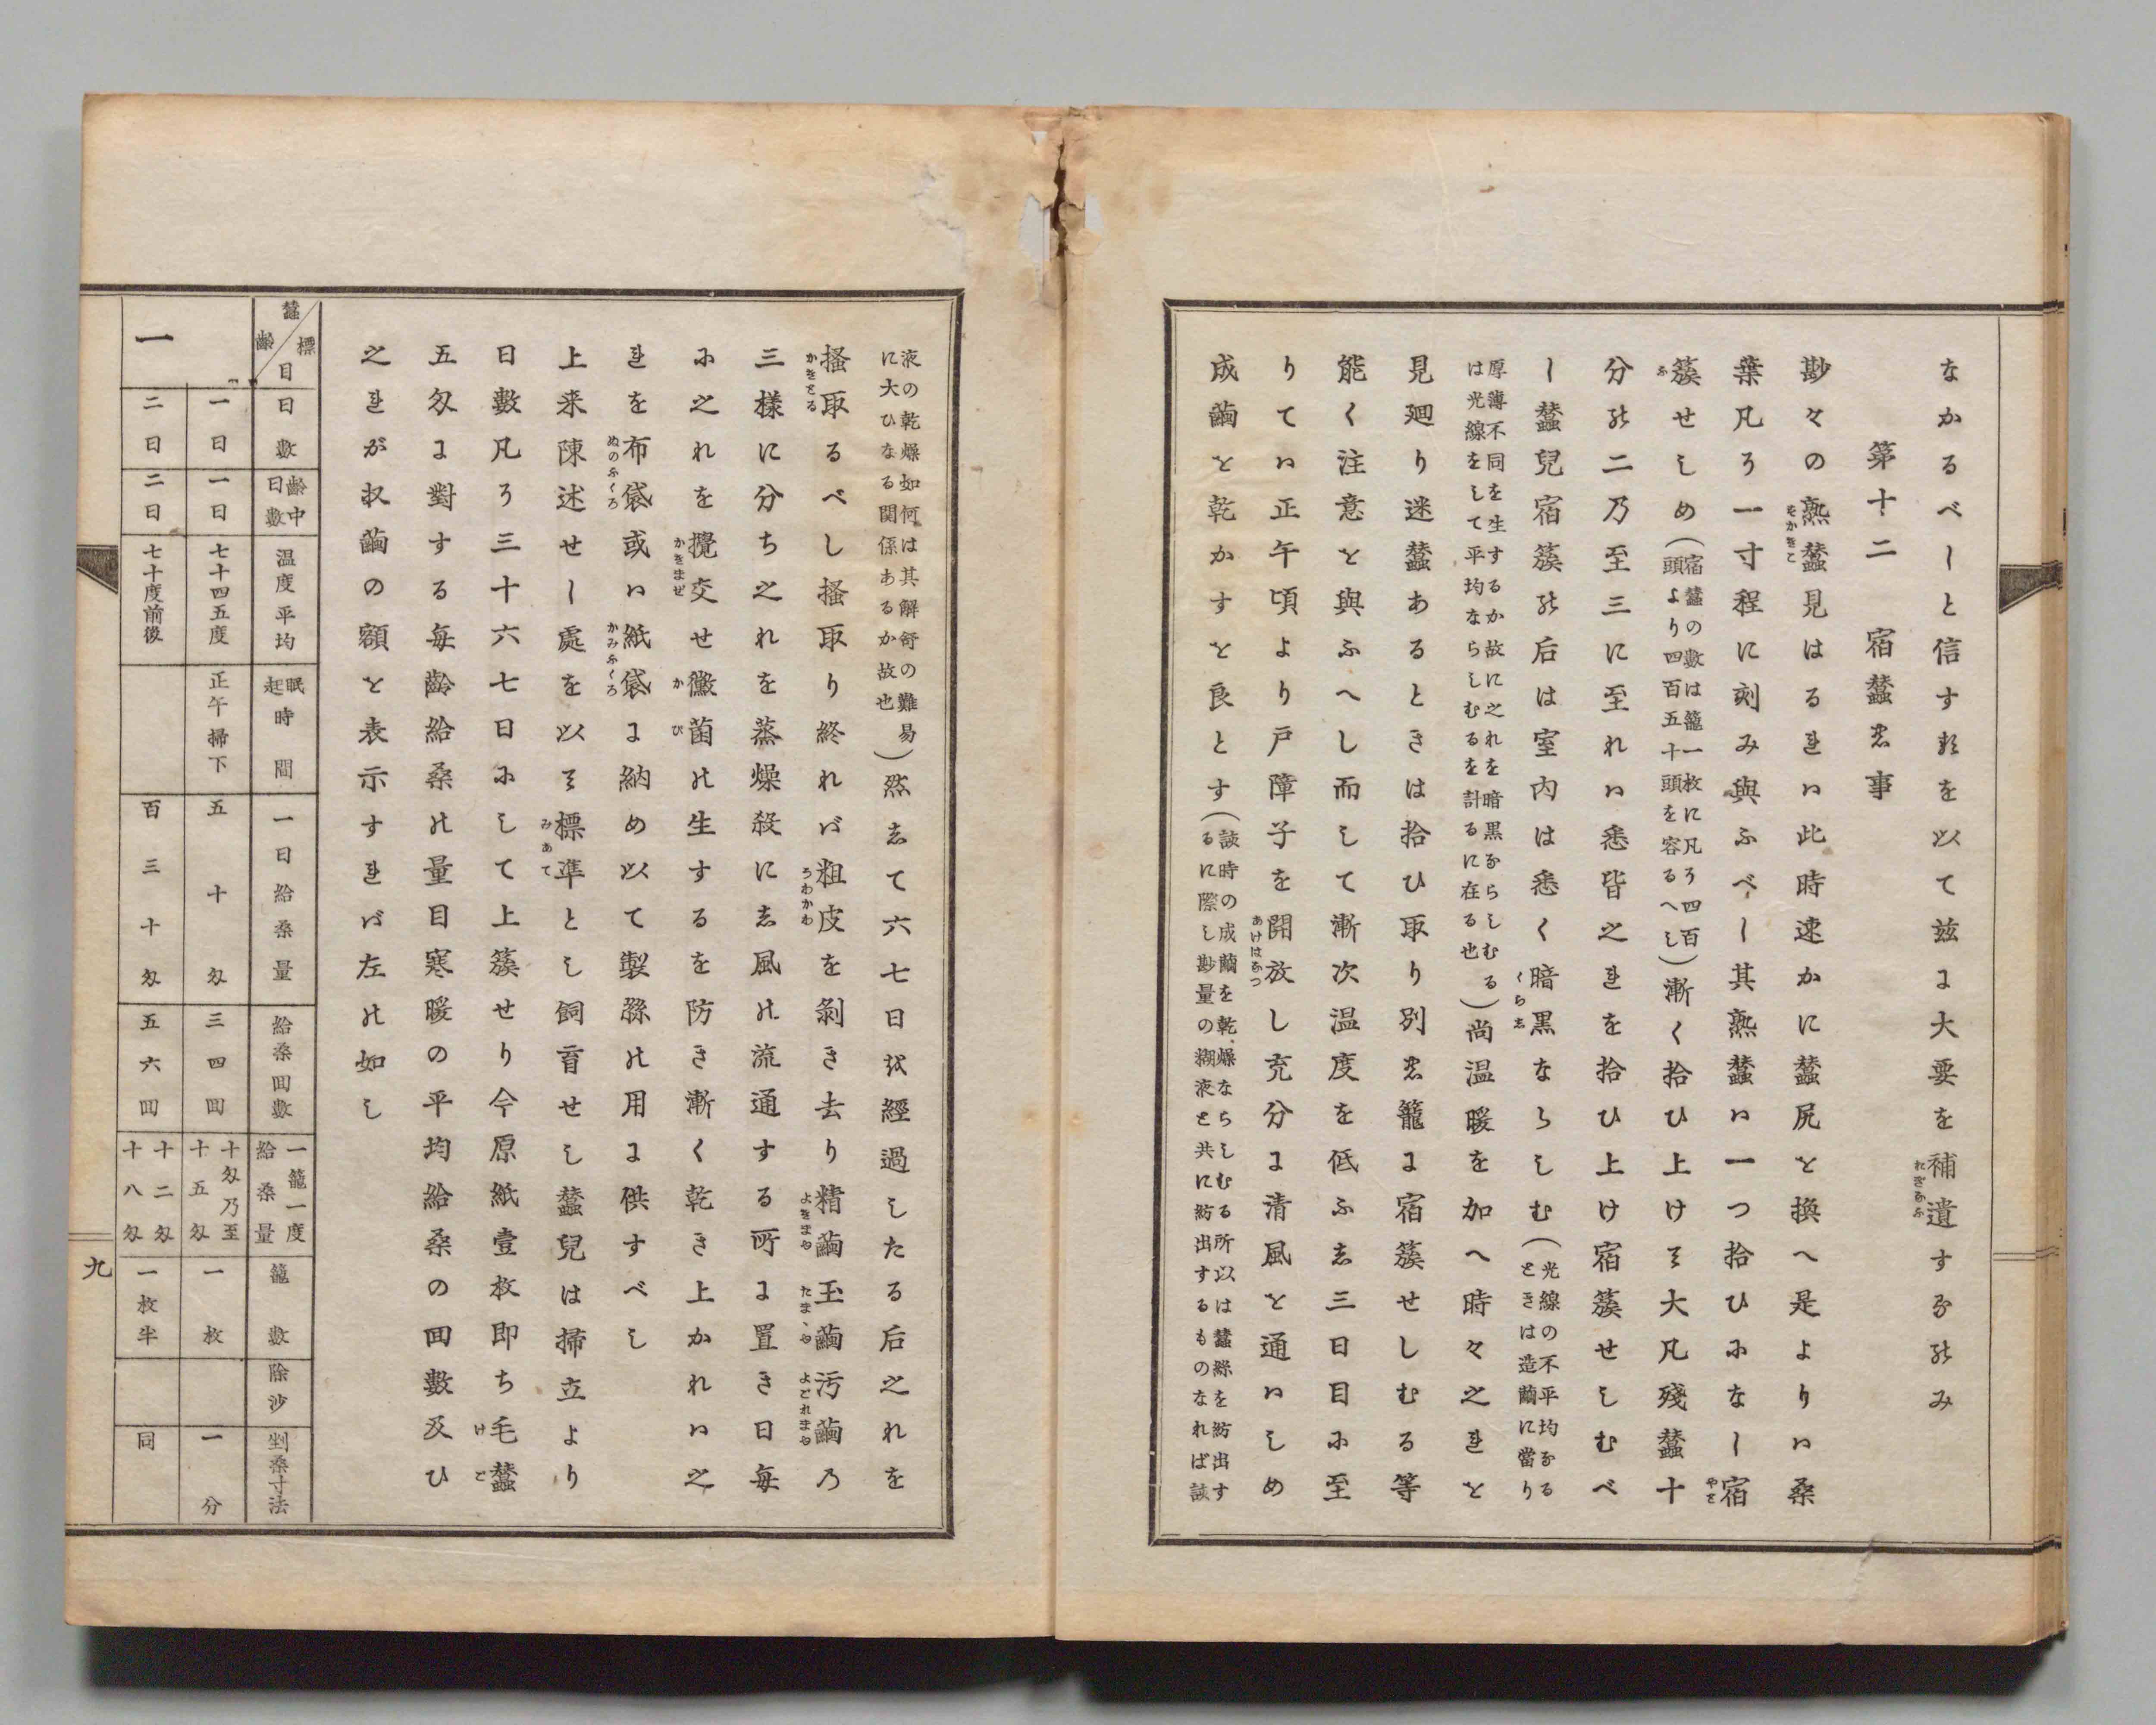 なかるべしと信ずるを以て茲に大要を補遺するのみ
れぎなふ
第十二　宿蠶の事
尠々の熟蠶見はるれは此時速かに蠶尻を換へ是よりは桑
葉凡そ一寸程に刻み與ふべし其熟蠶は一つ拾ひになし宿
やと
簇せしめ（宿蠶の數は籠一枚に凡そ四百
頭より四百五十頭を容るへし）漸く拾ひ上けて大凡殘蠶十
ふ
分の二乃至三に至れは悉皆之れを拾ひ上け宿簇せしむべ
し蠶兒宿簇の后は室内は悉く暗黒ならしむ（光線の不平均なる
ときは造繭に當り
くらき
厚薄不同を生するか故に之れを暗黒ならしむる
は光線をして平均ならしむるを計るに在る也）尚温暖を加へ時々之れを
見廻り迷蠶あるときは拾ひ取り別の籠に宿簇せしむる等
能く注意を與ふへし而して漸次温度を低ふし三日目に至
りては正午頃より戸障子を開放し充分に清風を通はしめ
あけはなつ
成繭を乾かすを良とす（該時の成繭を乾燥ならしむる所以は蠶絲を紡出す
るに際し尠量の糊液を共に紡出するものなれば該
液の乾燥如何は其解舒の難易
に大ひなる関係あるか故也）然して六七日を經過したる后之れを
搔取るべし搔取り終れば粗皮を剝き去り精繭玉繭汚繭乃
かきとる　うわかわ　よきまゆ　たまゝゆ　よごれまゆ
三樣に分ち之れを蒸燥殺にし風の流通する所に置き日每
に之れを攪交せ黴菌の生するを防き漸く乾き上かれは之
かきまぜ　かび
れを布袋或は紙袋に納め以て製絲の用に供すべし
ぬのふくろ　かみふくろ
上来陳述せし處を以て標準とし飼育せし蠶兒は掃立より
みあて
日數凡そ三十六七日にして上簇せり今原紙壹枚即ち毛蠶
けご
五匁に對する每齡給桑の量目寒暖の平均給桑の回數及ひ
之れが収繭の額を表示すれば左の如し
標目
蠶齡
日數
齡中日數
温度平均
眠起時間
一日給桑量
給桑回數
一籠一度給桑量
籠數
除沙
剉桑寸法
一
一日
一日
七十四五度
正午掃下
五十匁
三四回
十匁乃至十五匁
一枚
一分
二日
二日
七十度前後
百三十匁
五六回
十二匁
十八匁
一枚半
同
九